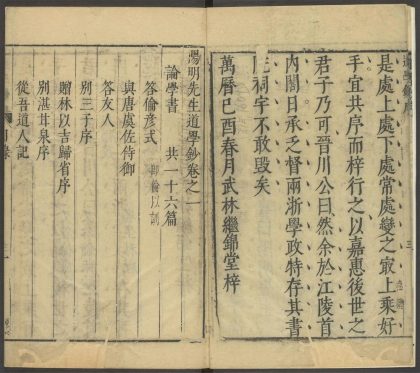 是處上處下處常處變之最上乘好
手宜共序而梓行之以嘉惠後世之
君子乃可晉川公曰然余於江陵首
内閣日承乏督兩浙學政特存其書
院祠宇不敢毀矣
萬曆己酉春月武林繼錦堂梓
陽明先生道學鈔卷之一
論學書 共一十六篇
答倫彦式 即倫以訓
與唐虞佐侍御
答友人
別三子序
贈林以吉歸省序
別湛甘泉序
從吾道人記